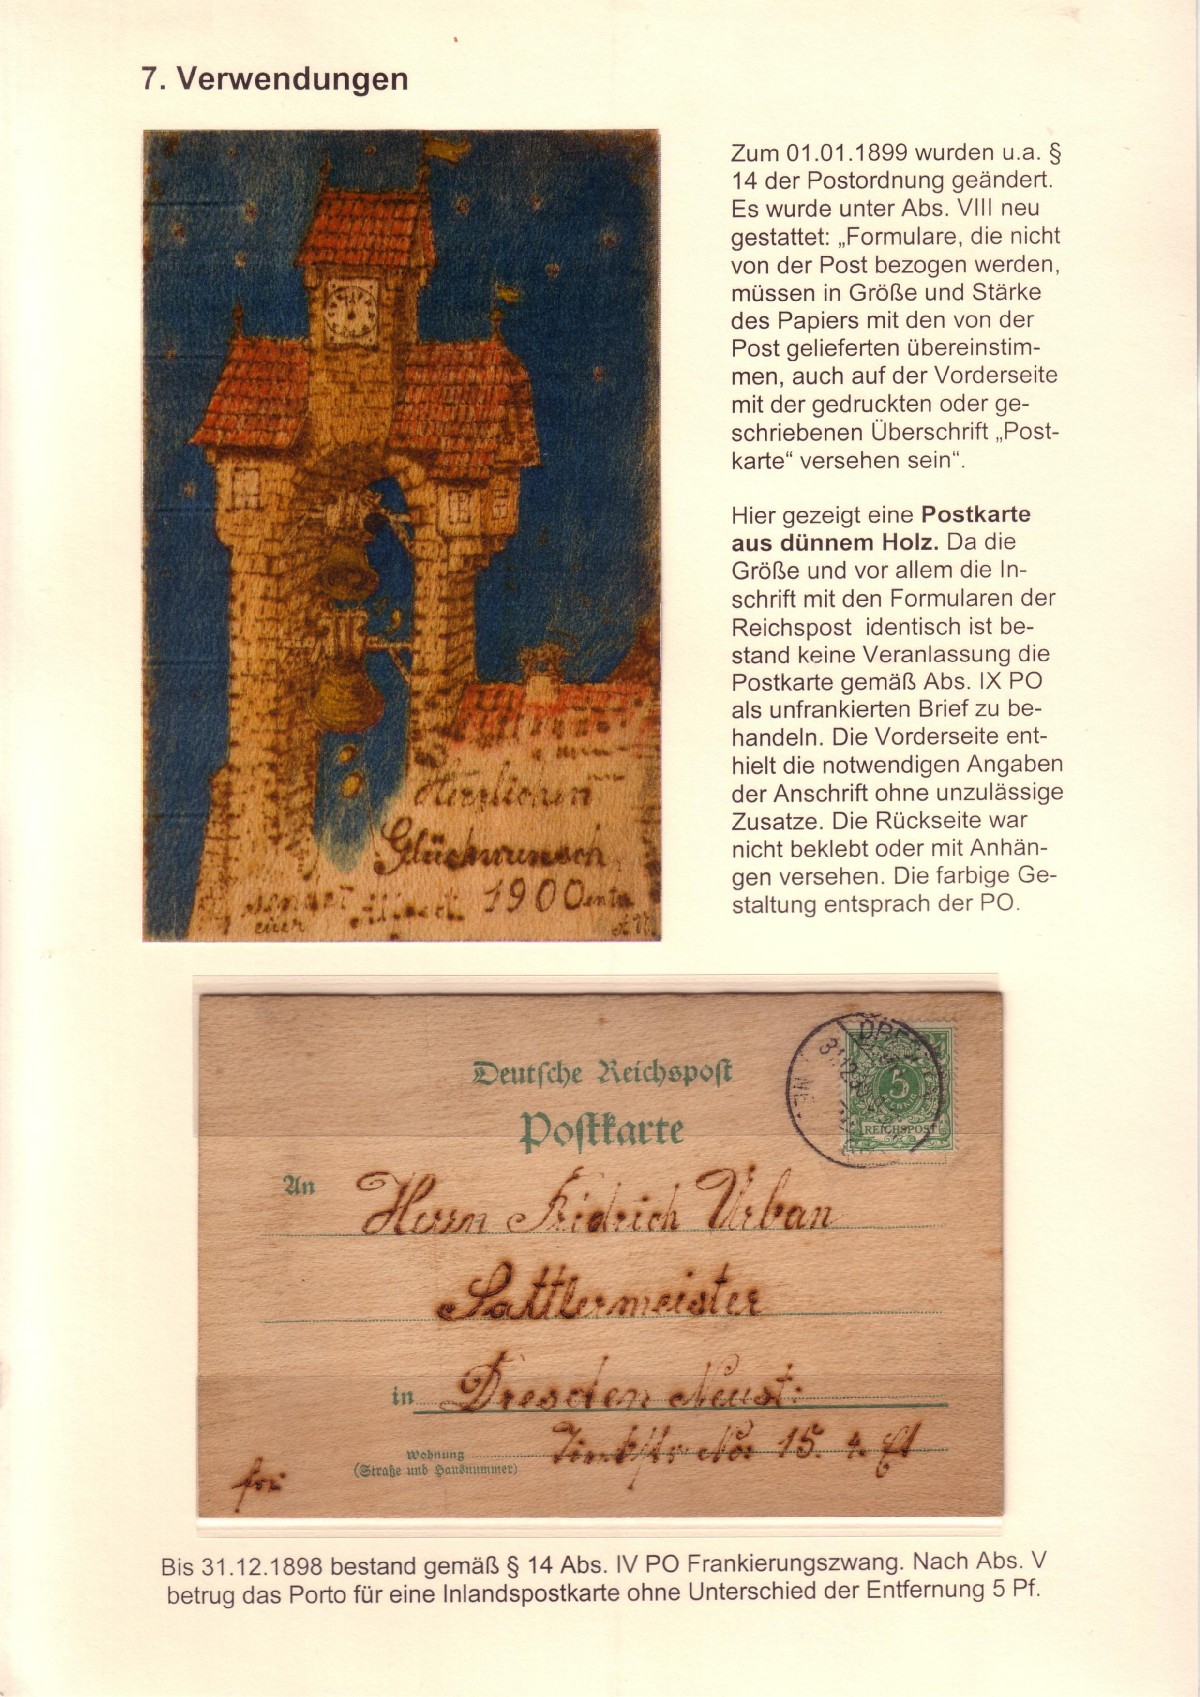 7. Verwendungen
Zum 01.01.1899 wurden u.a. §
14 der Postordnung geändert.
Es wurde unter Abs. VIII neu
gestattet: „Formulare, die nicht
von der Post bezogen werden,
müssen in Größe und Stärke
des Papiers mit den von der
Post gelieferten übereinstim-
men, auch auf der Vorderseite
mit der gedruckten oder ge-
schriebenen Überschrift „Post-
karte“ versehen sein“.
Hier gezeigt eine Postkarte
aus dünnem Holz. Da die
Größe und vor allem die In-
schrift mit den Formularen der
Reichspost identisch ist be-
stand keine Veranlassung die
Postkarte gemäß Abs. IX PO
als unfrankierten Brief zu be-
handeln. Die Vorderseite ent-
hielt die notwendigen Angaben
der Anschrift ohne unzulässige
Zusatze. Die Rückseite war
nicht beklebt oder mit Anhän-
gen versehen. Die farbige Ge-
staltung entsprach der PO.
Herzlichen
Glückwunsch
1900
euer
Deutsche Reichspost
Postkarte
5
REICHSPOST
An Herrn Fridrich Urban
Sattlermeister
in Dresden Neust:
Wohnung
(Straße und Hausnummer)
No 15. 4. Et
frei
Bis 31.12.1898 bestand gemäß § 14 Abs. IV PO Frankierungszwang. Nach Abs. V
betrug das Porto für eine Inlandspostkarte ohne Unterschied der Entfernung 5 Pf.